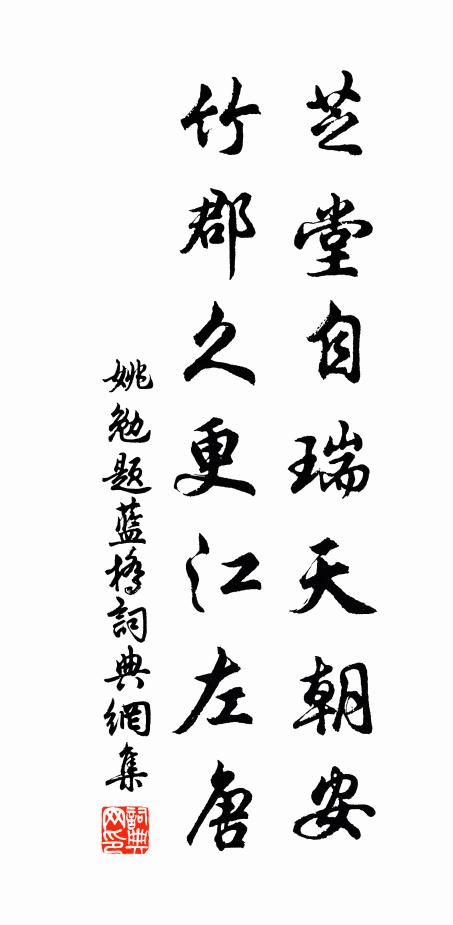 芝堂自瑞天朝安
竹郡久更江左唐
姚勉题蓝橋詞典網集
詞典网印